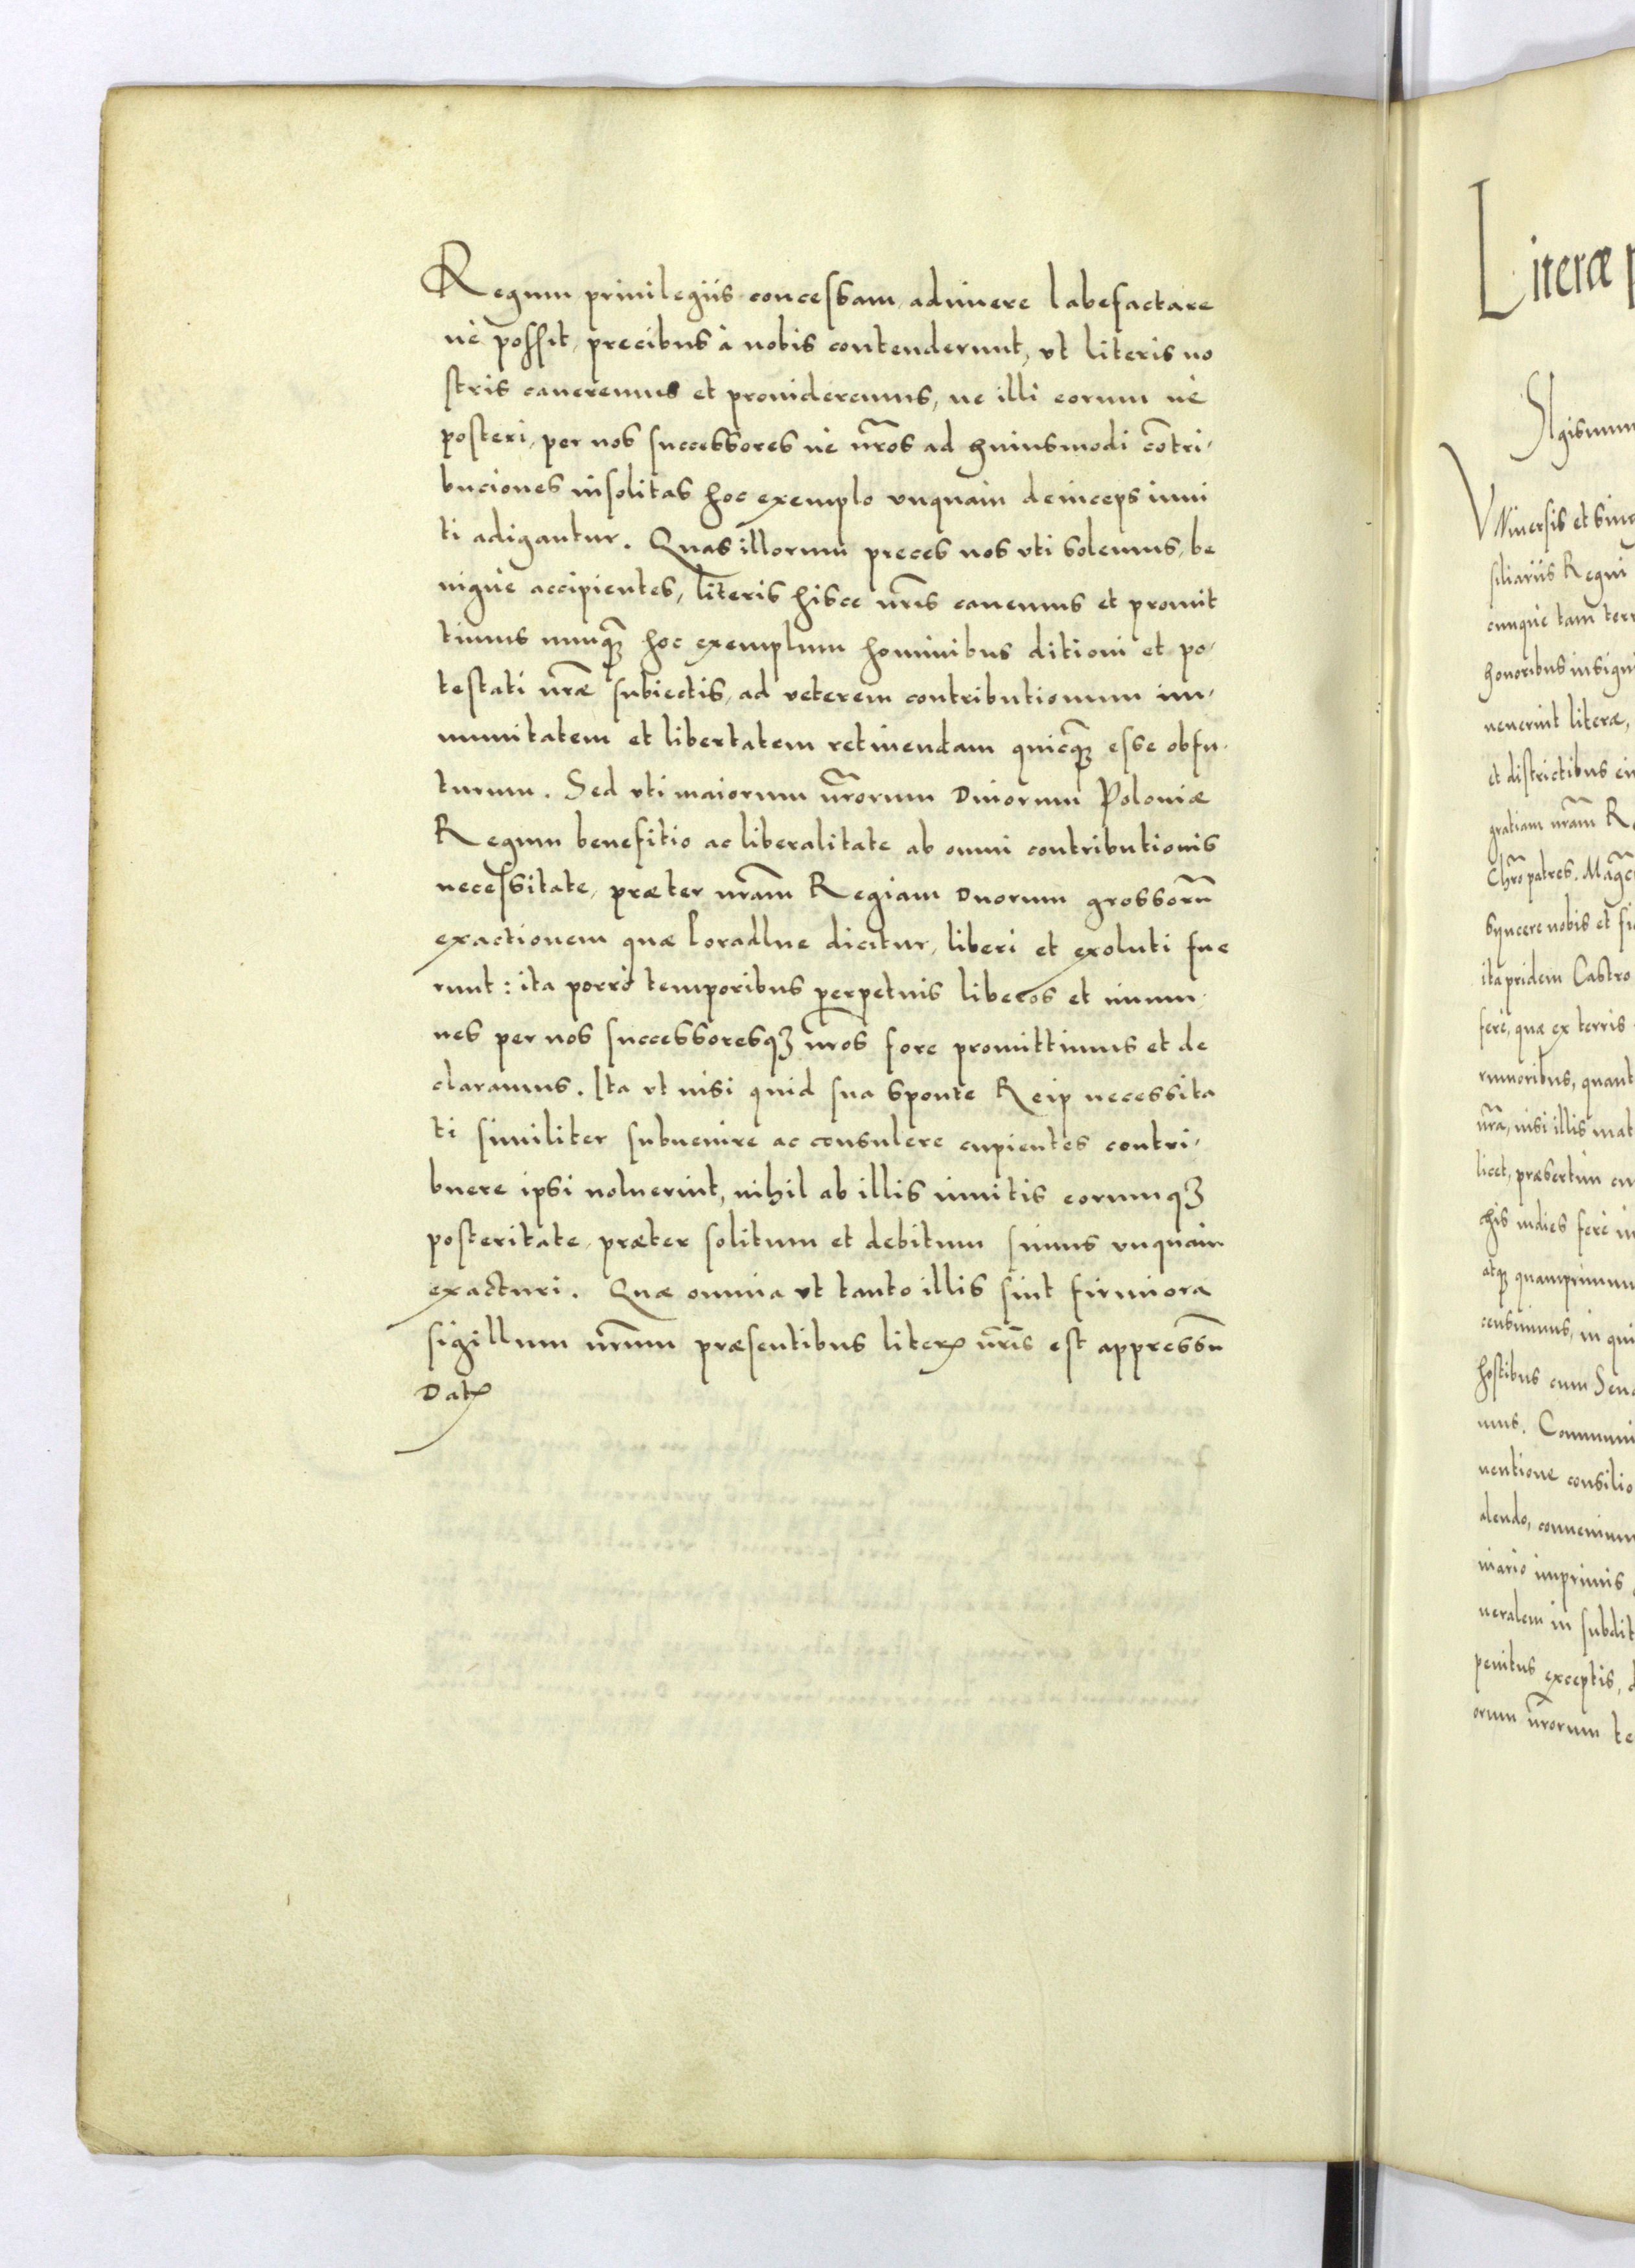 Regum priuilegiis concessam, adimere labefactare
uè possit, precibus à nobis contenderunt, vt literis no
stris caueremus et prouideremus, ne illi eorum uè
posteri, per nos successores uè nr̃os ad huiusmodi cõtri-
buciones insolitas hoc exemplo vnquam deinceps inui
ti adigantur. Quas illorum preces nos vti solemus, be
nigne accipientes, literis hisce nr̃is cauemus et promit
timus nunq̃ hoc exemplum hominibus ditioni et po-
testati nr̃æ subiectis, ad veterem contributionum im-
munitatem et libertatem retinendam quicq̃ esse obfu-
turum. Sed vti maiorum nr̃orum Diuorum Poloniæ
Regum benefitio ac liberalitate ab omni contributionis
necessitate, præter nr̃am Regiam duorum grossorũ
exactionem quæ Poradlne dicitur, liberi et exoluti fue
runt: ita porrò temporibus perpetuis liberos et immu-
nes per nos successoresq3 nr̃os fore promittimus et de
claramus. Ita vt nisi quid sua sponte Reip necessita
ti similiter subuenire ac consulere cupientes contri-
buere ipsi voluerint, nihil ab illis inuitis eorumq3
posteritate, præter solitum et debitum simus vnquam
exacturi. Quæ omnia vt tanto illis sint firmiora
sigillum nr̃um præsentibus literꝭ nr̃is est appressũ
Datꝭ
Literæ
Sigismun
Vniuersis et sing
siliariis Regni
cunque tam terr
honoribus insigni
uenerint literæ,
et districtibus
gratiam nr̃am R
Chr̃o patres. Mag̃c
syncere nobis et fi
ita pridem Castro
ferè, quæ ex terris
rumoribus, quant
nr̃a, nisi illis mat
licet, præsertim
chis indies ferè in
atq3 quamprimum
censuimus, in qui
hostibus cum Sena
mus. Communi
uentione consilio
alendo, conuenimu
inario imprimis
neralem in subdit
penitus exceptis,
orum nr̃orum te